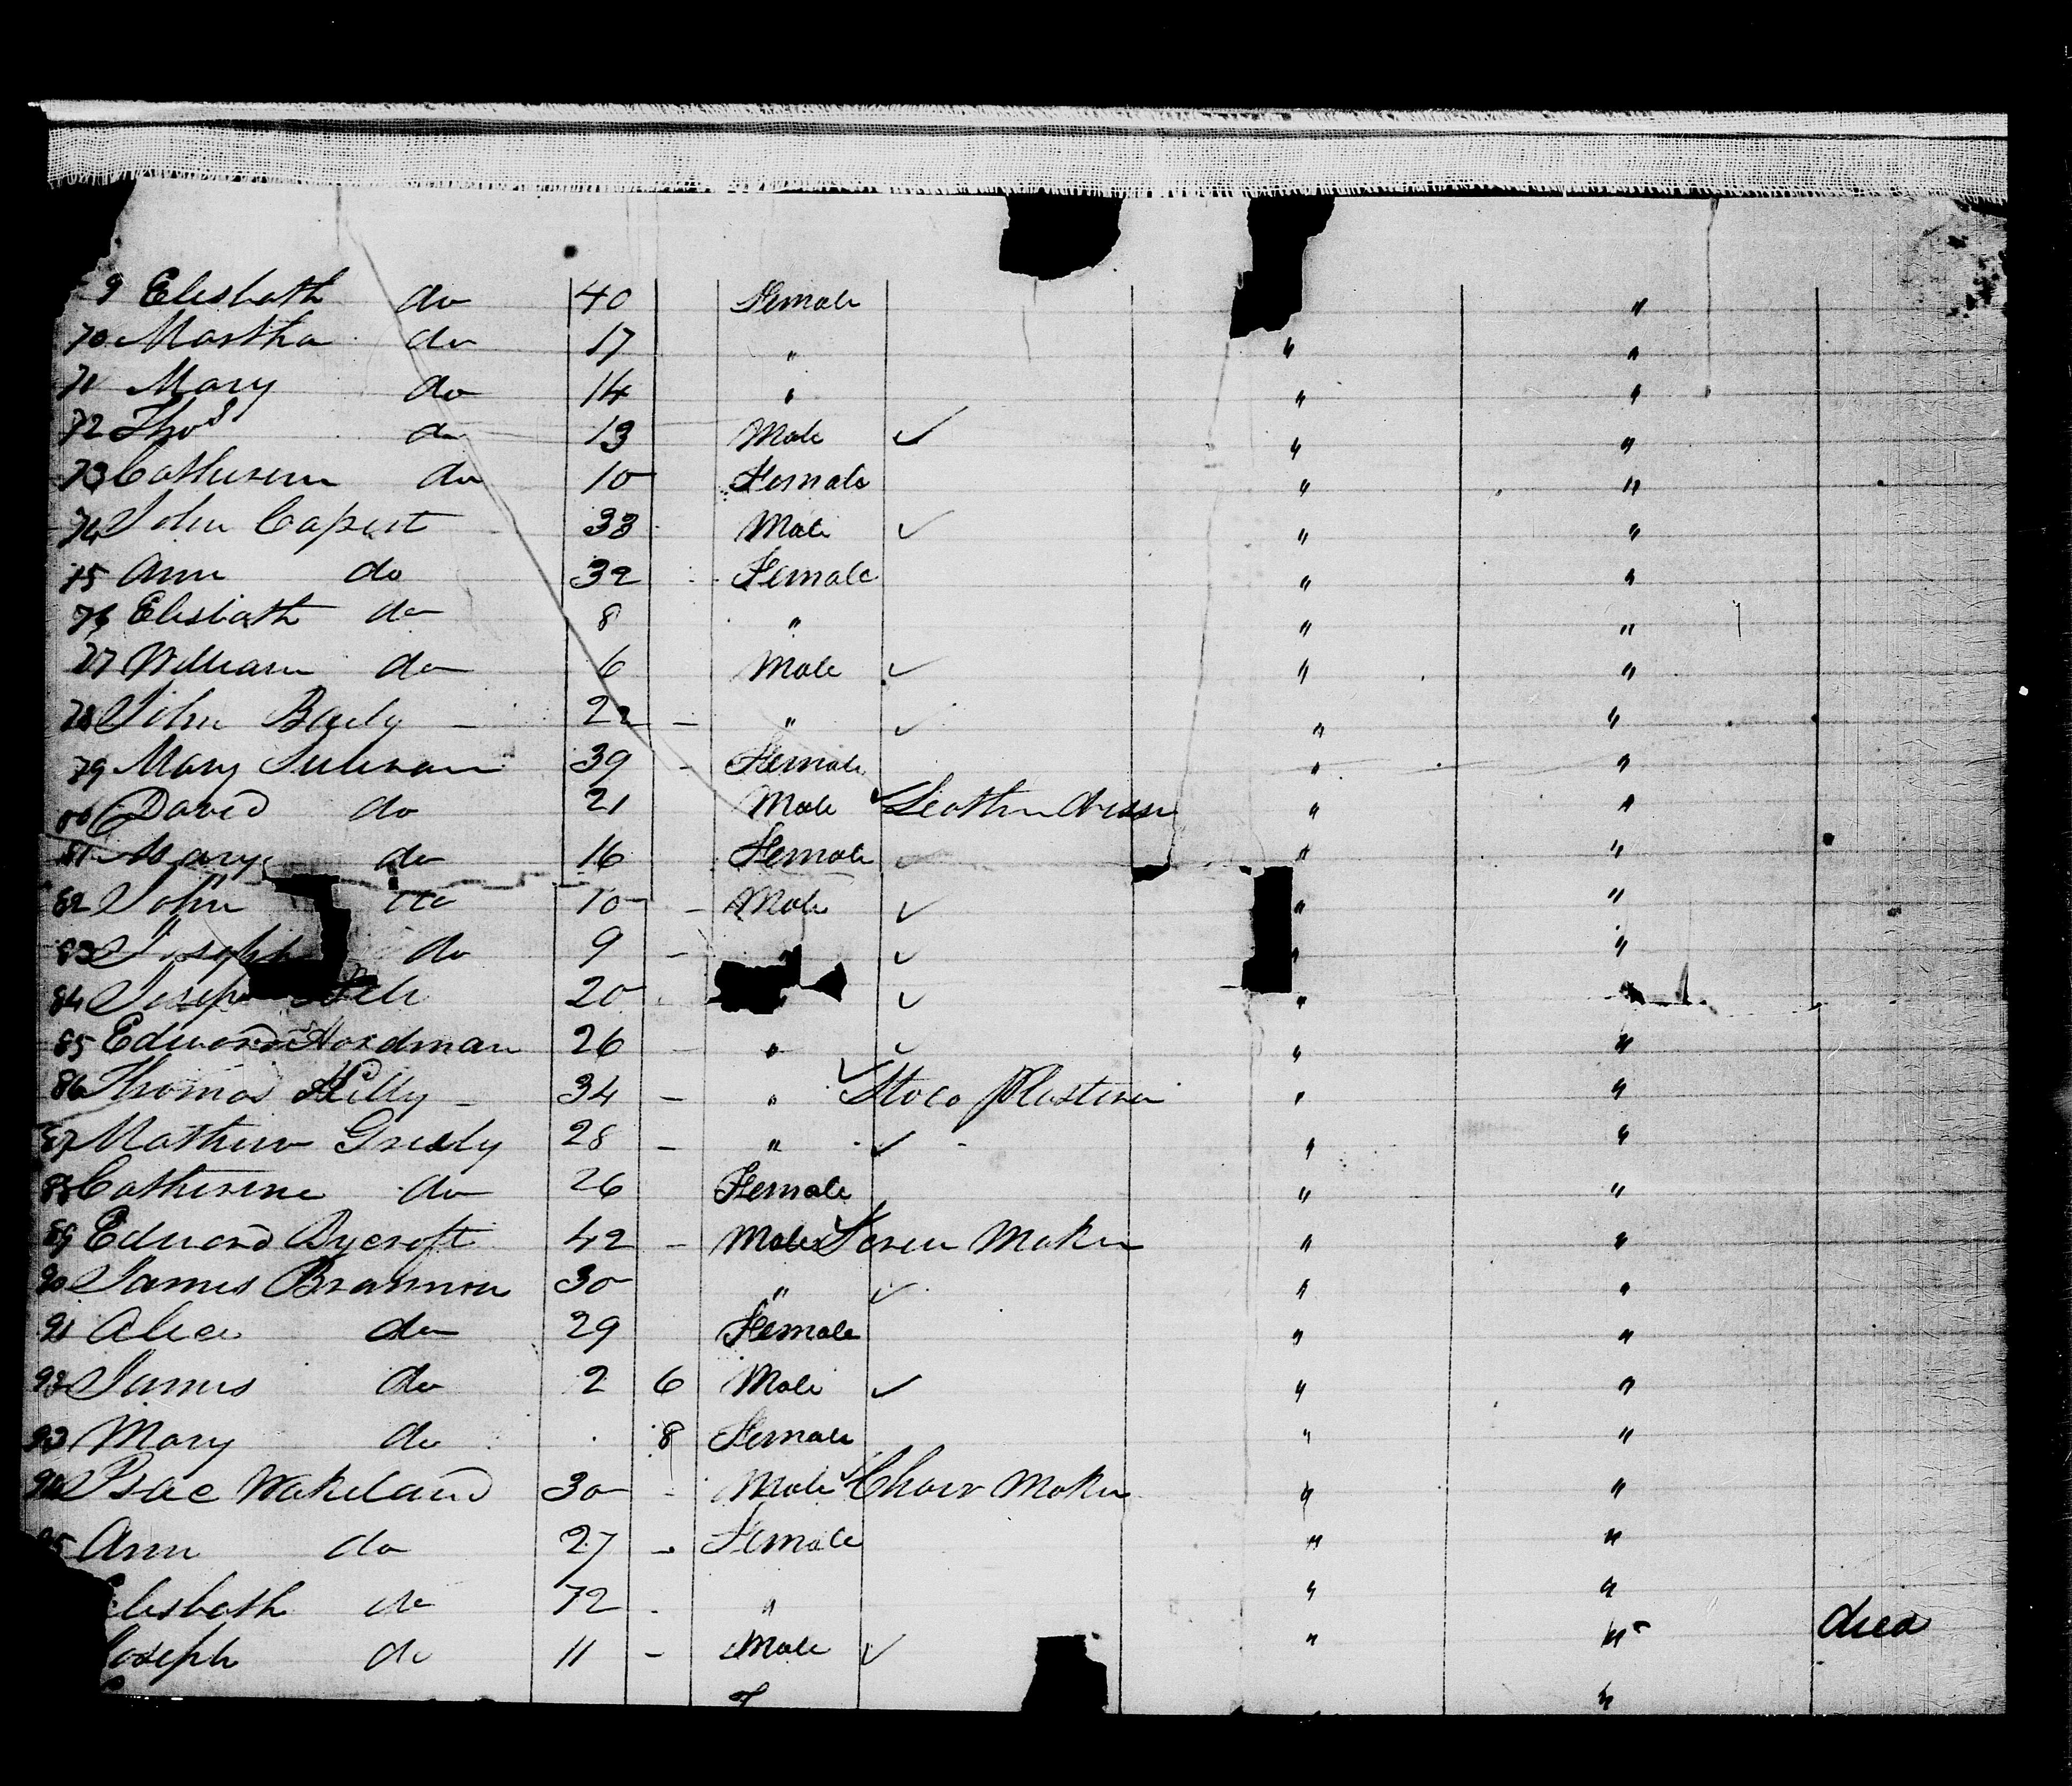 9 Elisbath do 40 Female "
70 Martha do 17 " " "
71 Mary do 14 " " "
72 Thos do 13 Male ✓ " "
73 Catheren do 10 Female " "
74 John Capert 33 Male ✓ " "
75 Ann do 32 Female " "
76 Elisbath do 8 " " "
77 William do 6 Male ✓ " "
78 John Baily - 22 - " ✓ " "
79 Mary Sulivan 39 - Female " "
80 David do 21 Male ✓ Leather dresser " "
81 Mary do 16 Female ✓ " "
82 John do 10 - Male ✓ " "
83 Joseph do 9 - ✓ " "
84 Joseph 20 " ✓ " "
85 Edward Hardman 26 - " ✓ " "
86 Thomas Killy - 34 - " ✓ Stoco Plasterer " "
87 Mathew Greely 28 - " ✓ - " "
88 Catherine do 26 Female " "
89 Edward Bycroft 42 - Male ✓ Screw Maker " "
90 James Brannon 30 " ✓ " "
91 Alice do 29 Female " "
92 James do 2 6 Male ✓ " "
93 Mary do 8 Female " "
94 Isac Wakeland 30 - Male ✓ Chair Maker " "
95 Ann do 27 - Female " "
Elisbath do 72 - " " "
Joseph do 11 - Male ✓ " " died
"